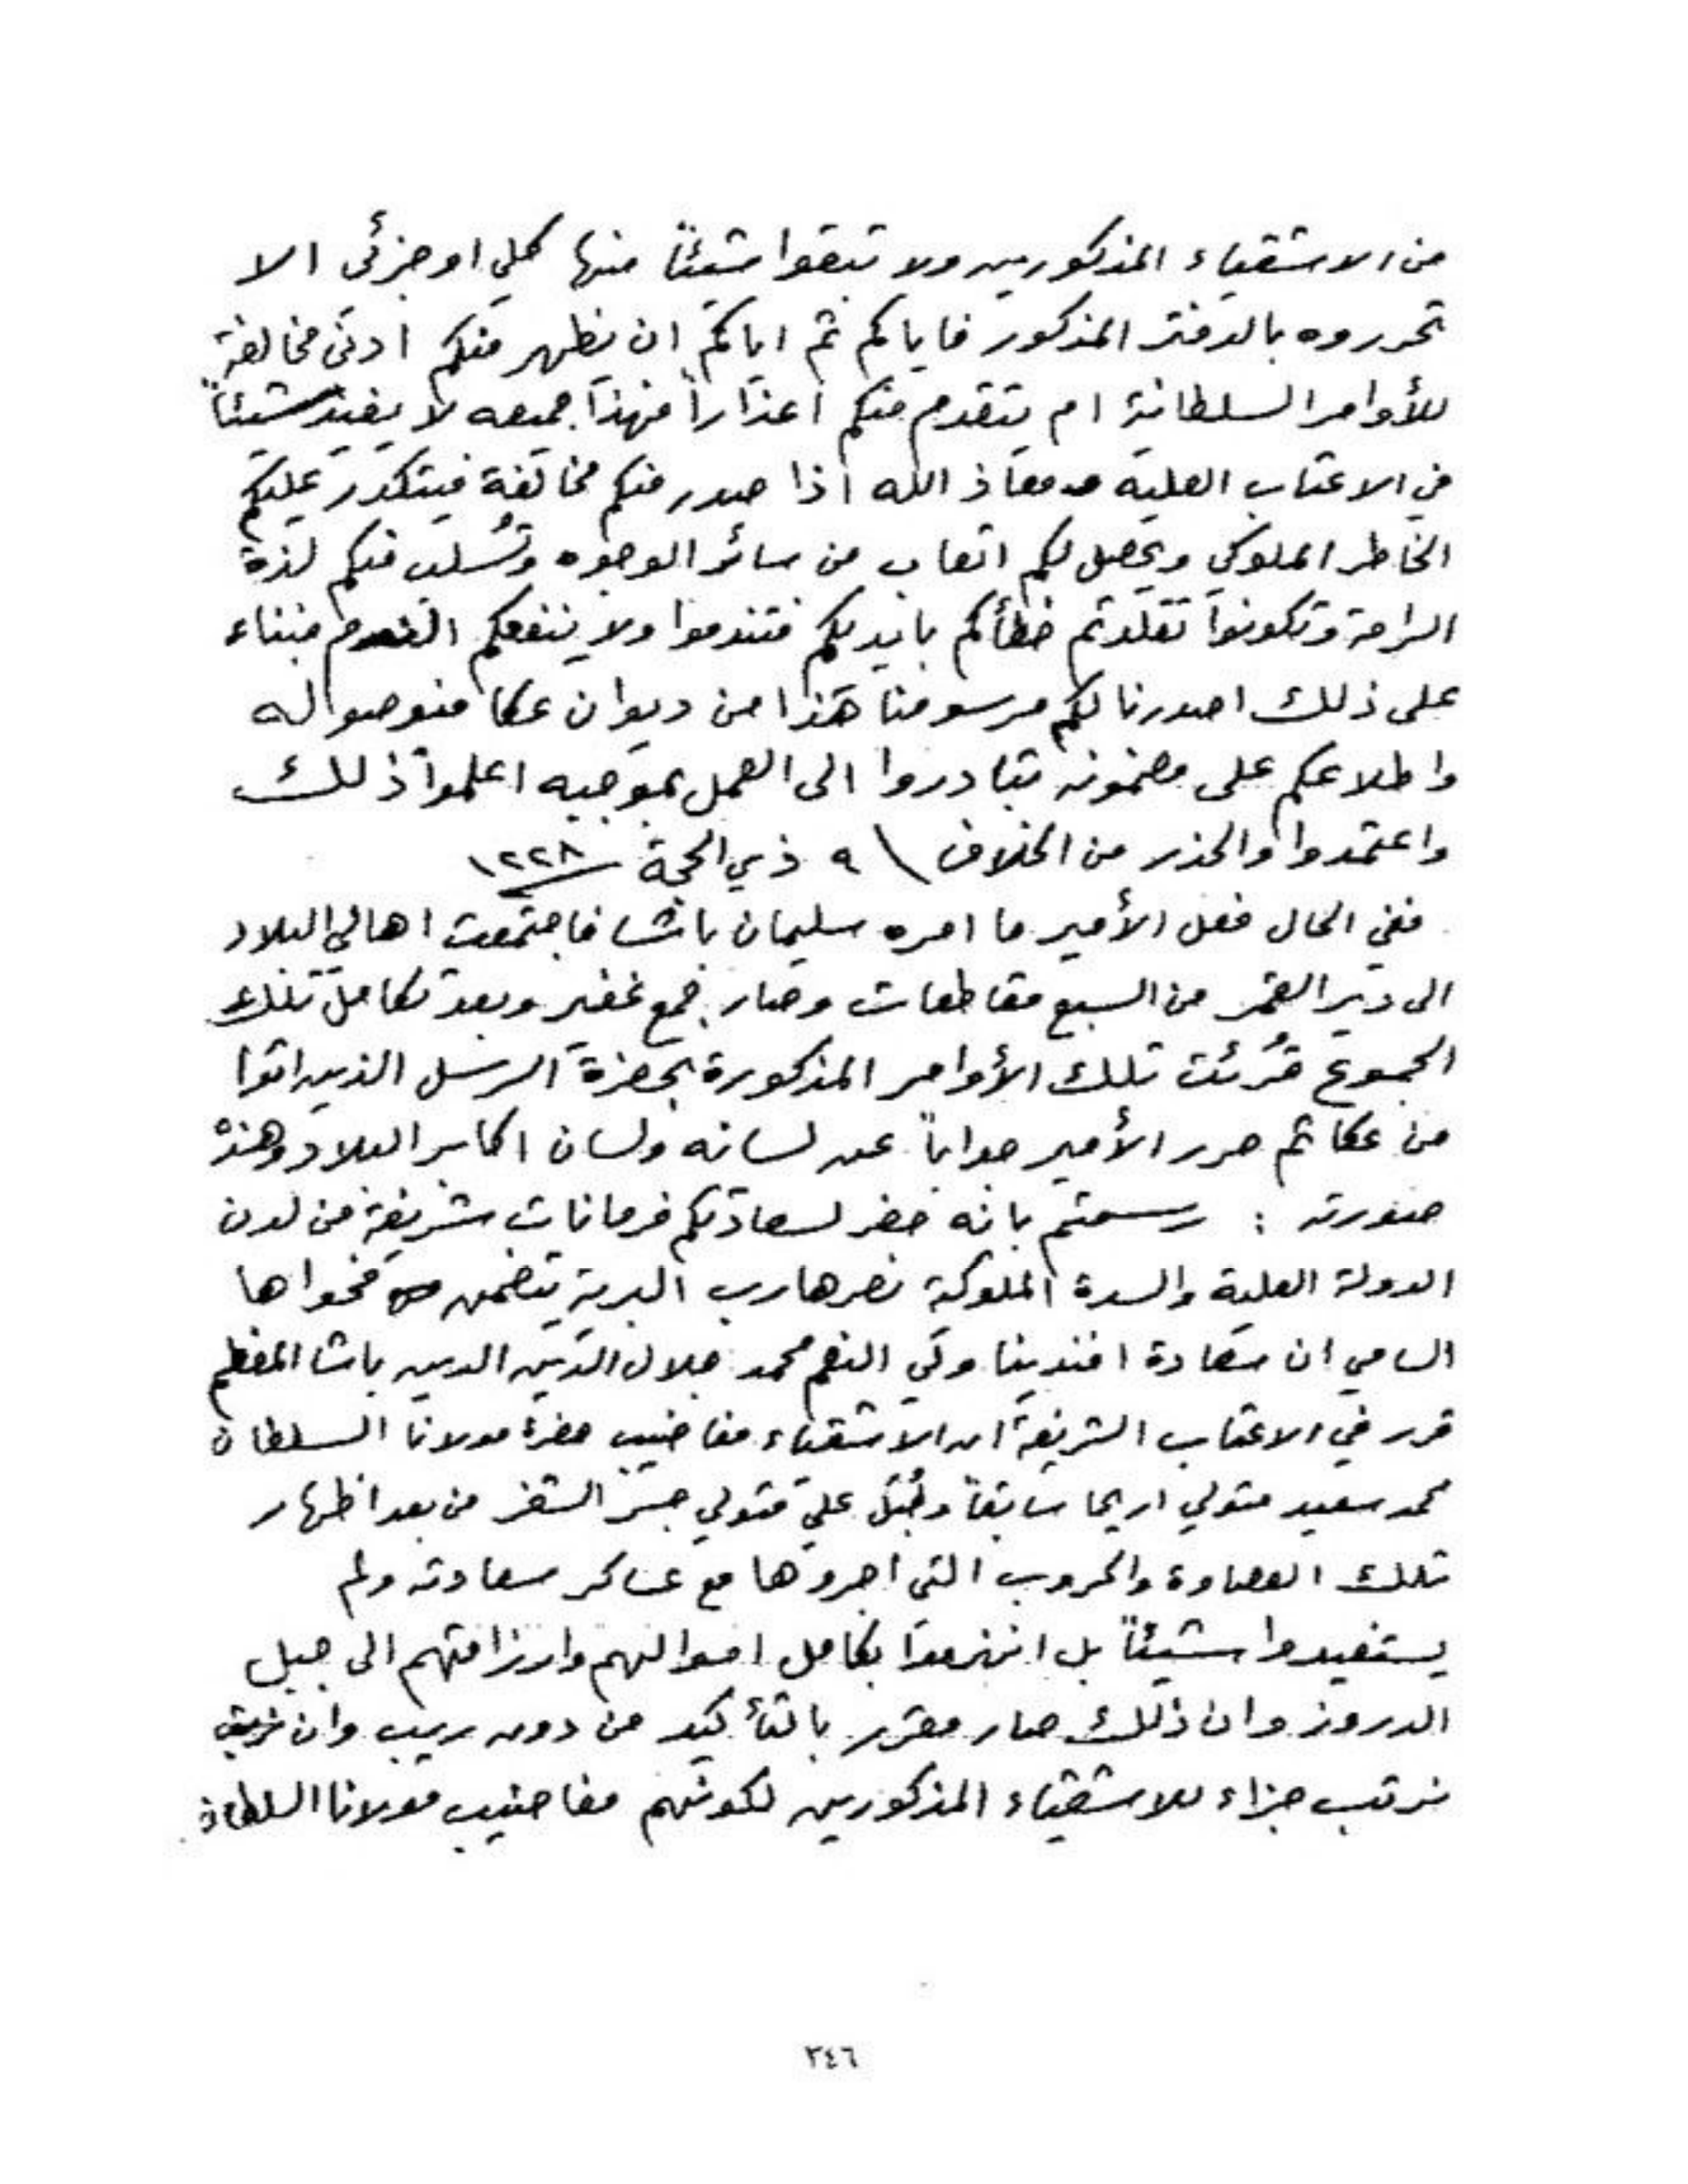 من الاشقياء المذكورين ولا تبقوا شيئاً منها كلي او جزئي الا
تحرروه بالدفتر المذكور فاياكم ثم اياكم ان يظهر منكم ادنى مخالفة
للأوامر السلطانية ام يتقدم منكم اعذاراً فهذا جميعه لا يفيد شيئاً
في الاعتاب العلية ومعاذ الله اذا صدر منكم مخالفة فيتكدر عليكم
الخاطر الملوكي ويحصل لكم اتعاب من سائر الوجوه وتُسلب منكم لذة
الراحة وتكونوا تقلدتم خطأكم بايديكم فتندموا ولا ينفعكم الندم فبناء
على ذلك اصدرنا لكم مرسومنا هذا من ديوان عكا فبوصوله
واطلاعكم على مضمونه تبادروا الى العمل بموجبه اعلموا ذلك
واعتمدوا والحذر من الخلاف \ ٩ ذي الحجة ١٢٢٨
ففي الحال فعل الأمير ما امره سليمان باشا فاجتمعت اهالي البلاد
الى دير القمر من السبع مقاطعات وصار جمع غفير وبعد تكامل تلك
الجموع قُرئت تلك الأوامر المذكورة بحضرة الرسل الذين اتوا
من عكا ثم حرر الأمير جواباً عن لسانه ولسان اكابر البلاد وهذه
صورته : رسمتم بانه حضر لسعادتكم فرمانات شريفة من لدن
الدولة العلية والسدة الملوكية نصرها رب البرية يتضمن فحواها
السامي ان سعادة افندينا ولي النعم محمد جلال الدين الدين باشا المعظم
قرر في الاعتاب الشريفة ان الاشقياء مغاضيب حضرة مولانا السلطان
محمد سعيد متولي اريحا سابقاً وطُبَّل علي متولي جسر الشغر من بعد اظهار
تلك العصاوة والحروب التي اجروها مع عساكر سعادته ولم
يستفيدوا شيئاً بل انهزموا بكامل اموالهم وارزاقهم الى جبل
الدروز وان ذلك صار مقرر بالتأكيد من دون ريب وان
نرتب جزاء للاشقياء المذكورين لكونهم مغاضيب مولانا السلطان
٣٤٦